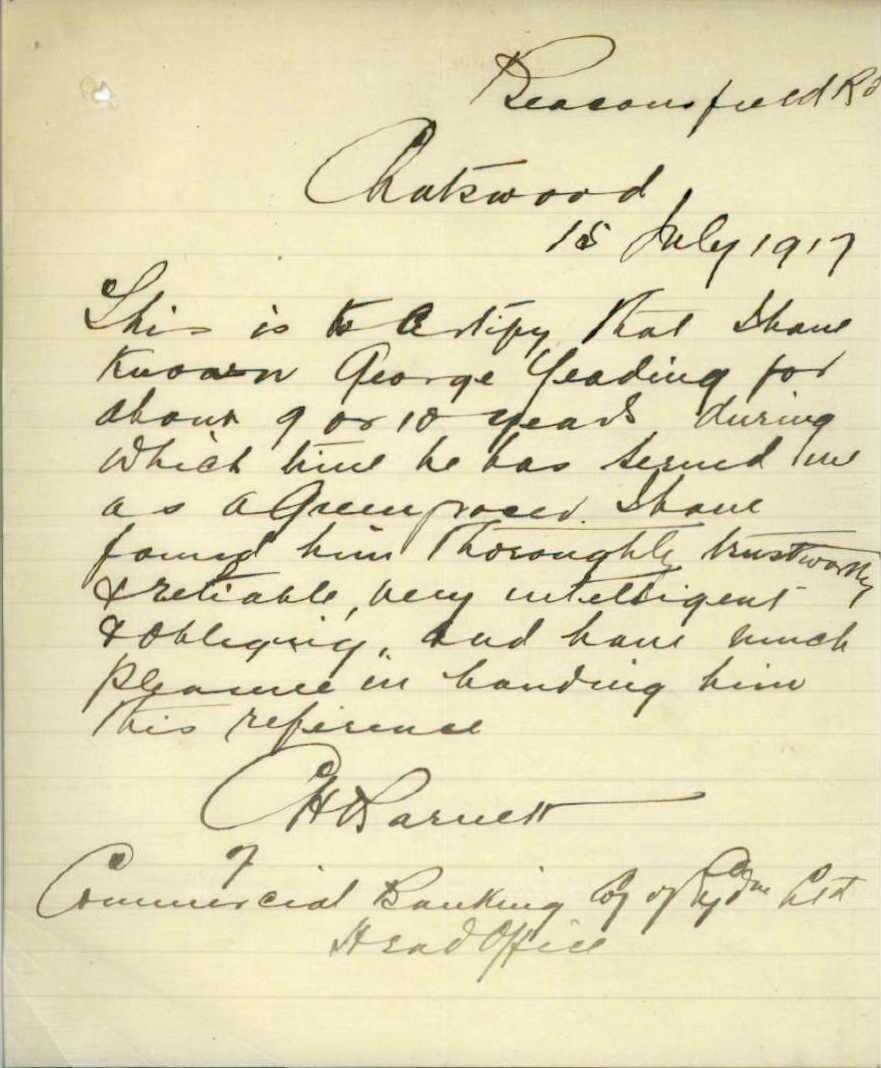 Beaconsfield Rd
Chatswood
15 July 1917
This is to certify that I have
known George Yeading for
about 9 or 10 years, during
which time he has served me
as a Greengrocer. I have
found him thoroughly trustworthy
& reliable, very intelligent
& obliging, and have much
pleasure in handing him
this reference
C H Barnett
of
Commercial Banking Coy of Sydn Ltd
Head Office